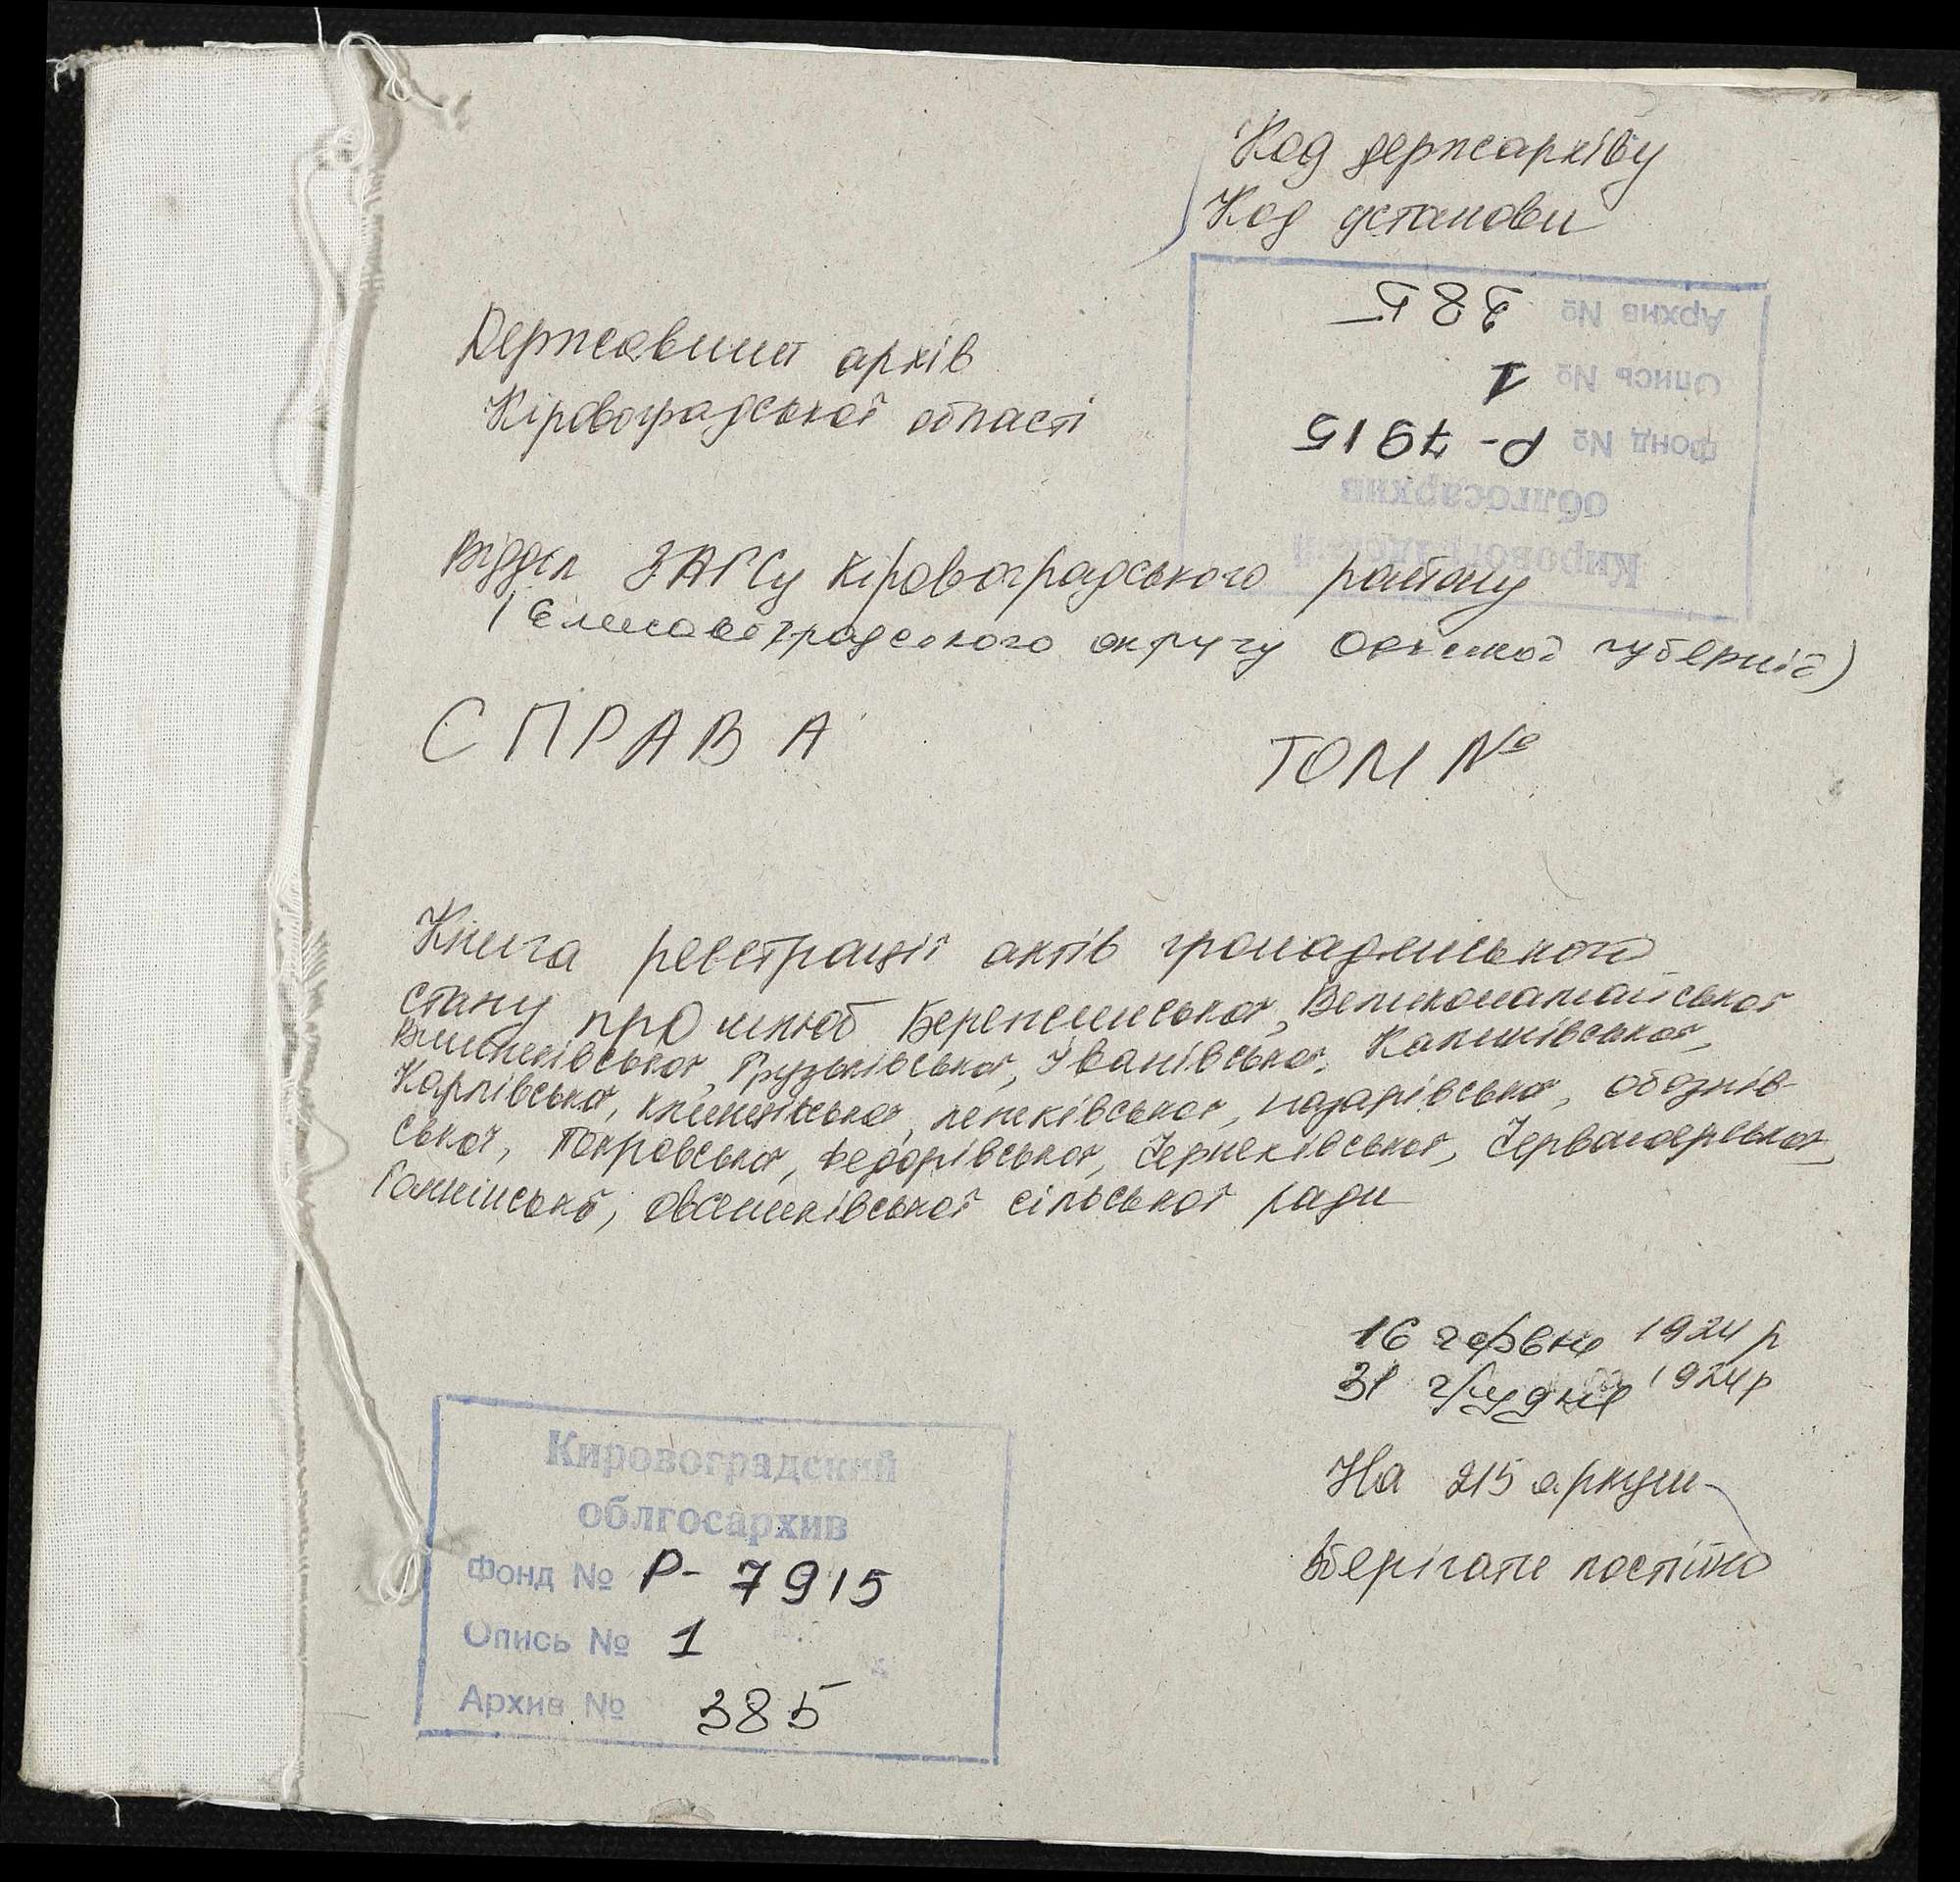 Код держархіву
Код установи
Кировоградский
облгосархив
Фонд № Р-7915
Опись № 1
Архив № 385
Державний архів
Кіровоградської області
Відділ ЗАГСу Кіровоградського району
(Єлисаветградського округу Одеської губернії)
СПРАВА
ТОМ №
Книга реєстрації актів громадянського
стану про шлюб Бережинської, Великомамайської
Вишняківської, Грузьківської, Іванівської,
Карлівської, лелеківської, назарівської, обознів-
ської, Покровської, Федорівської, Черняківської, Червоноярської,
Ганнінської, овсяниківської сільської ради
16 червня 1924 р
31 грудня 1924 р
На 215 аркуш
Зберігати постійно
Кировоградский
облгосархив
Фонд № Р-7915
Опись № 1
Архив № 385